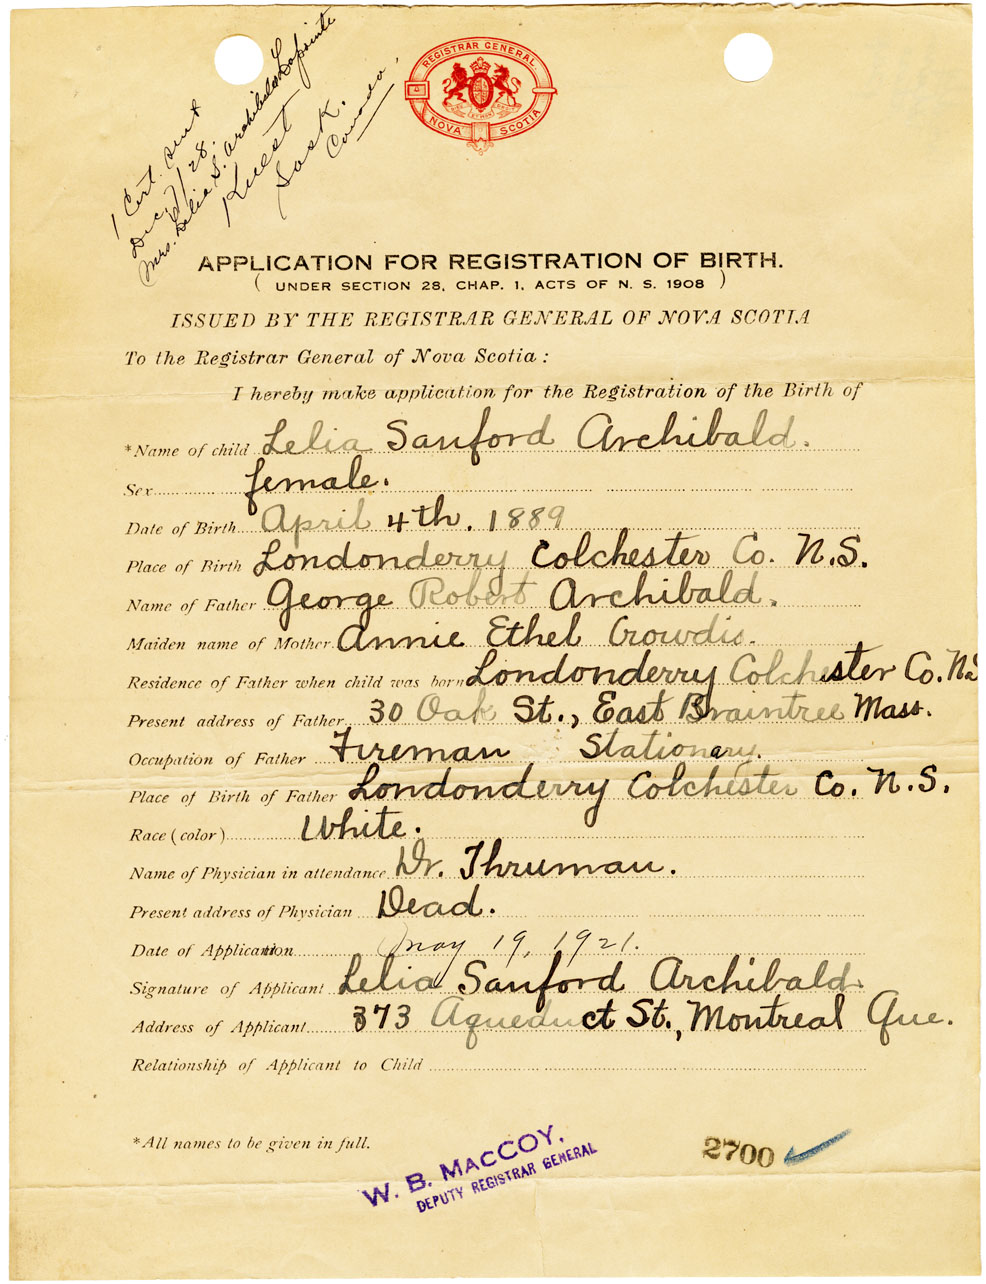 1 Cert. sent
Dec 7/28.
Mrs. Lelia S. Archibald Lapointe
Sask.
Canada.
REGISTRAR GENERAL
NOVA SCOTIA
APPLICATION FOR REGISTRATION OF BIRTH.
( UNDER SECTION 28, CHAP. 1, ACTS OF N. S. 1908 )
ISSUED BY THE REGISTRAR GENERAL OF NOVA SCOTIA
To the Registrar General of Nova Scotia :
I hereby make application for the Registration of the Birth of
*Name of child Lelia Sanford Archibald.
Sex female.
Date of Birth April 4th. 1889
Place of Birth Londonderry Colchester Co. N.S.
Name of Father George Robert Archibald.
Maiden name of Mother Annie Ethel Crowdis.
Residence of Father when child was born Londonderry Colchester Co. N.S
Present address of Father 30 Oak St., East Braintree Mass.
Occupation of Father Fireman Stationary.
Place of Birth of Father Londonderry Colchester Co. N.S.
Race (color) White.
Name of Physician in attendance Dr. Thruman.
Present address of Physician Dead.
Date of Application May 19, 1921.
Signature of Applicant Lelia Sanford Archibald.
Address of Applicant 373 Aqueduct St., Montreal Que.
Relationship of Applicant to Child
*All names to be given in full.
2700
W. B. MACCOY,
DEPUTY REGISTRAR GENERAL